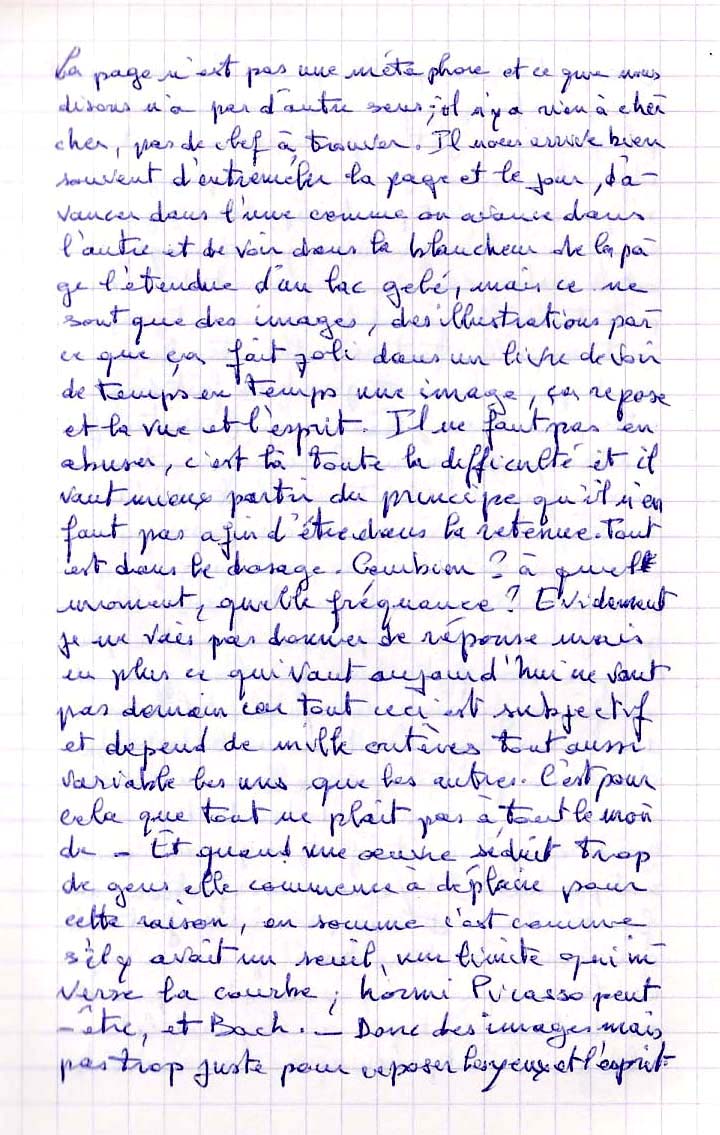 La page n'est pas une métaphore et ce que nous
disons n'a pas d'autre sens; il n'y a rien à cher
cher, pas de clef à trouver. Il nous arrive bien
souvent d'entremêler la page et le jour, d'a-
vancer dans l'une comme on avance dans
l'autre et de voir dans la blancheur de la pa
ge l'étendue d'un lac gelé, mais ce ne
sont que des images, des illustrations par
ce que ça fait joli dans un livre de voir
de temps en temps une image, ça repose
et la vue et l'esprit. Il ne faut pas en
abuser, c'est là toute la difficulté et il
vaut mieux partir du principe qu'il n'en
faut pas afin d'être dans la retenue. Tout
est dans le dosage. Combien ? à quel
moment, quelle fréquance ? Evidemment
je ne vais pas donner de réponse mais
en plus ce qui vaut aujourd'hui ne vaut
pas demain car tout ceci est subjectif
et depend de mille critères tout aussi
variable les uns que les autres. C'est pour
cela que tout ne plaît pas à tout le mon
de - Et quand une œuvre séduit trop
de gens elle commence à déplaire pour
cette raison, en somme c'est comme
s'il y avait un seuil, une limite qui in
verse la courbe ; hormi Picasso peut
-être, et Bach. - Donc des images mais
pas trop juste pour reposer les yeux et l'esprit.